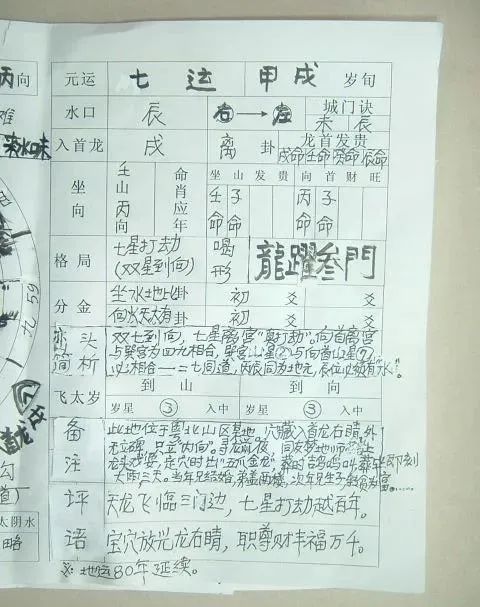 丙向
难
来水味
九 59
戌
龙
勾
道)
太阴水
略
元运 七 运 甲戌 岁旬
水口 辰 右→左 城门诀
未 辰
入首龙 戌 离 卦 龙首发贵
戌命 壬命 癸命 辰命
坐向 壬山丙向 命肖应年 坐山发贵 向首财旺
壬命 子命 丙命 子命
格局 七星打劫
(双星到向) 喝形 龍躍叁門
分金 坐水地比卦 初 爻
向火天大有卦 初 爻
头
简析 双七到向,七星离宫"真打劫"。向首离宫
与巽宫为四九相合,巽宫山星②与向首山星⑦
必相合一二七同道,丙辰同为地元,辰位必须有"水"。
飞太岁 到 山 到 向
岁星 ③ 入中 岁星 ③ 入中
备注 此地位于 北山区墓地 穴藏入首龙右睛,外
无立碑,只立"内向"。寻龙 夜,同
龙头戏耍,定穴时出"五爪金龙",葬时喜鸟鸣叫 葬毕即刻
大雨三天。当年兄结婚,弟盖两楼,次年兄生子
评语 天龙飞临三门边,七星打劫越百年。
宝穴放光龙右睛,职尊财丰福万千。
※:地运80年延续。